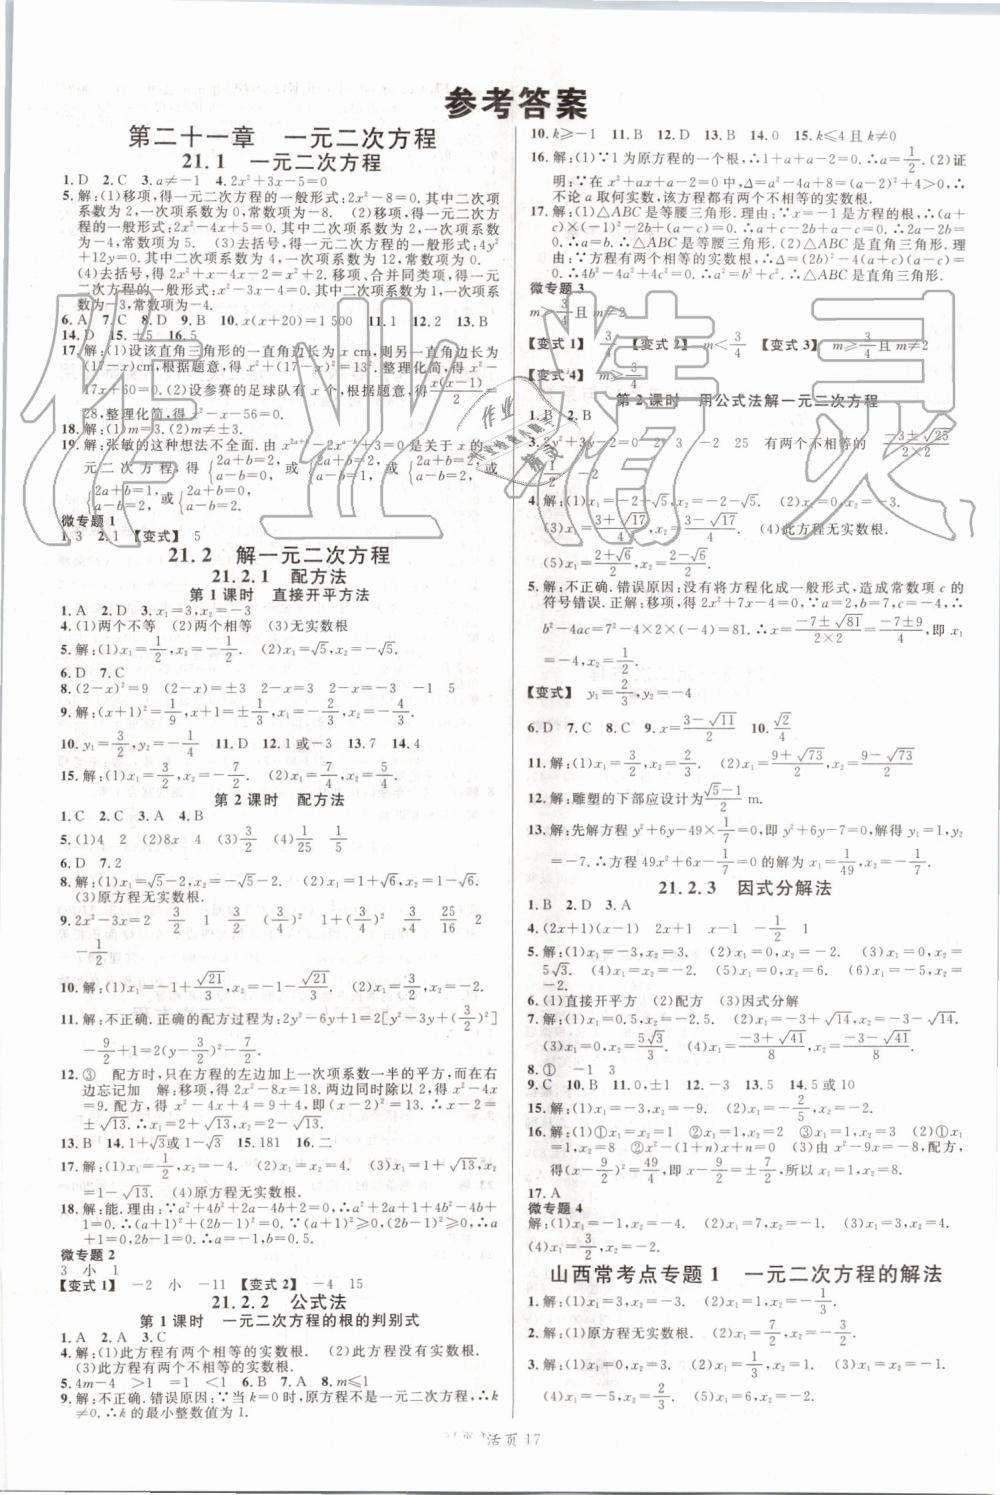 参考答案
第二十一章 一元二次方程
21.1 一元二次方程
1.D 2.C 3.a≠-1 4.2x²+3x-5=0
5.解:(1)移项,得一元二次方程的一般形式:2x²-8=0.其中二次项
系数为2,一次项系数为0,常数项为-8. (2)移项,得一元二次方
程的一般形式:2x²-4x+5=0.其中二次项系数为2,一次项系数
为-4,常数项为5. (3)去括号,得一元二次方程的一般形式:4y²
+12y=0.其中二次项系数为4,一次项系数为12,常数项为0.
(4)去括号,得4x²-4=2+x².移项、合并同类项,得一元
二次方程的一般形式:
系数为-3,常数项为-4.
6.A 7.C 8.D 9.B 10.x(x+20)=1 500 11.1 12.2 13.B
14.D 15.±5 16.5
17.解:(1)设该直角三角形的一直角边长为x cm,则另一直角边长
为(17-x)cm.根据题意,得x²+(17-x)²=13².整理化简,得x²-
17x+60=0.(2)设参赛的足球队有x个,根据题意,得x(x-1)/2=
28,整理化简,得x²-x-56=0.
18.解:(1)m=3.(2)m=±3
19.解:张敏的这种想法不全面.由
微专题1
1.3 2.1 【变式】 5
21.2 解一元二次方程
21.2.1 配方法
第1课时 直接开平方法
1.A 2.D 3.x₁=3,x₂=-3
4.(1)两个不等 (2)两个相等 (3)无实数根
5.解:(1)x₁=1/2,x₂=-1/2. (2)x₁=√5,x₂=-√5.
6.D 7.C
8.(2-x)²=9 (2-x)=±3 2-x=3 2-x=-3 -1 5
9.解:(x+1)²=1/9,x+1=±1/3,x₁=-2/3,x₂=-4/3.
10.y₁=3/2,y₂=-1/4 11.D 12.1或-3 13.7 14.4
15.解:(1)x₁=3/2,x₂=-7/2. (2)x₁=7/4,x₂=5/4.
第2课时 配方法
1.C 2.C 3.A 4.B
5.(1)4 2 (2)8x 4 (3)3/2 (4)1/25 1/5
6.D 7.2
8.解:(1)x₁=√5-2,x₂=-√5-2. (2)x₁=1+√6,x₂=1-√6.
(3)原方程无实数根.
9.2x²-3x=2 3/2 1 3/2 (3/4)² 1+(3/4)² 3/4 25/16 2
-1/2
10.解:(1)x₁=-1+√21/3,x₂=-1-√21/3.
11.解:不正确.正确的配方过程为:2y²-6y+1=2[y²-3y+(3/2)²]
-9/2+1=2(y-3/2)²-7/2.
12.③ 配方时,只在方程的左边加上一次项系数一半的平方,而在右
边忘记加 解:移项,得2x²-8x=18.两边同时除以2,得x²-4x
=9.配方,得x²-4x+4=9+4,即(x-2)²=13.∴x-2=
±√13.∴x₁=2+√13,x₂=2-√13.
13.B 14.1+√3或1-√3 15.181 16.二
17.解:(1)x₁=1/2,x₂=-1. (2)x₁=-2,x₂=4. (3)x₁=1+√13,
x₂=1-√13. (4)原方程无实数根.
18.解:能.理由:∵a²+4b²+2a-4b+2=0,∴a²+2a+1+4b²-4b
+1=0.∴(a+1)²+(2b-1)²=0.∵(a+1)²≥0,(2b-1)²≥0,
∴a+1=0,2b-1=0.∴a=-1,b=0.5.
微专题2
3 小 1
【变式1】 -2 小 -11 【变式2】 -4 15
21.2.2 公式法
第1课时 一元二次方程的根的判别式
1.A 2.A 3.C
4.解:(1)此方程有两个相等的实数根. (2)此方程没有实数根.
(3)此方程有两个不相等的实数根.
5.4m-4 >1 =1 <1 6.B 7.A 8.m≤1
9.解:不正确.错误原因:∵当k=0时,原方程不是一元二次方程,∴k
≠0.∴k的最小整数值为1.
10.k≥-1 11.B 12.D 13.B 14.0 15.k≤4且k≠0
16.解:(1)∵1为原方程的一个根,∴1+a+a-2=0.∴a=1/2.(2)证
明:∵在x²+ax+a-2=0中,Δ=a²-4a+8=(a-2)²+4>0,∴
不论a取何实数,该方程都有两个不相等的实数根.
17.解:(1)△ABC是等腰三角形.理由:∵x=-1是方程的根,∴(a+
c)×(-1)²-2b+(a-c)=0.∴a+c-2b+a-c=0.∴2a-2b=
0.∴a=b.∴△ABC是等腰三角形. (2)△ABC是直角三角形.
理由:∵方程有两个相等的实数根,∴(2b)²-4(a+c)(a-c)
=0.∴4b²-4a²+4c²=0.∴a²=b²+c².∴△ABC是直角三角形.
微专题3
m>3/4且m≠2
【变式1】 【变式2】 m<3/4 【变式3】 m≥3/4且m≠2
【变式4】 m≥3/4
第2课时 用公式法解一元二次方程
1.B 2.B
3.2y²+3y-2=0 2 3 -2 25 有两个不相等的 (-3±√25)/(2×2)
1/2 -2
(3)x₁=(3+√17)/4,x₂=(3-√17)/4. (4)此方程无实数根.
(5)x₁=(2+√6)/2,x₂=(2-√6)/2.
5.解:不正确.错误原因:没有将方程化成一般形式,造成常数项c的
符号错误.正解:移项,得2x²+7x-4=0.∵a=2,b=7,c=-4,∴
b²-4ac=7²-4×2×(-4)=81.∴x=(-7±√81)/(2×2)=(-7±9)/4,即x₁
=-4,x₂=1/2.
【变式】 y₁=2/3,y₂=-4
6.D 7.C 8.C 9.x=(3-√11)/2 10.√2/4
11.解:(1)x₁=3/2,x₂=-4. (2)x₁=(9+√73)/2,x₂=(9-√73)/2.
12.解:雕塑的下部应设计为(√5-1) m.
13.解:先解方程y²+6y-49×1/7=0,即y²+6y-7=0,解得y₁=1,y₂
=-7.∴方程49x²+6x-1/7=0的解为x₁=1/49,x₂=-1/7.
21.2.3 因式分解法
1.B 2.D 3.A
4.(2x+1)(x-1) 2x+1 x-1 -1/2 1
5.解:(1)x₁=-5,x₂=3. (2)x₁=0,x₂=-2. (3)x₁=0,x₂=
5√3. (4)x₁=-5,x₂=5. (5)x₁=0,x₂=6. (6)x₁=x₂=-2.
6.(1)直接开平方 (2)配方 (3)因式分解
7.解:(1)x₁=0.5,x₂=-2.5. (2)x₁=-3+√14,x₂=-3-√14.
(3)x₁=0,x₂=5√3/3. (4)x₁=(-3+√41)/8,x₂=(-3-√41)/8.
8.① -1 3
9.C 10.B 11.0,±1 12.-3 13.5 14.5或10
15.解:(1)x₁=-3,x₂=1. (2)x₁=-2/5,x₂=-1.
16.解:(1)①x₁=x₂=1 ②x₁=1,x₂=2 ③x₁=1,x₂=3 (2)①x₁=
1,x₂=8 ②x²-(1+n)x+n=0 (3)x²-9x=-8,配方,
得(x-9/2)²=49/4,即x-9/2=±7/2,所以x₁=1,x₂=8.
17.A
微专题4
解:(1)x₁=1,x₂=-4. (2)x₁=7,x₂=-1. (3)x₁=-2,x₂=4.
(4)x₁=3/2,x₂=-2.
山西常考点专题1 一元二次方程的解法
1.解:(1)x₁=3,x₂=-3. (2)x₁=-1,x₂=-1/3.
2.解:(1)原方程无实数根. (2)x₁=7/2,x₂=-3/2.
3.解:(1)x₁=1,x₂=-5. (2)x₁=3,x₂=-1/3.
(3)x₁=-5,x₂=2/3. (4)x₁=3,x₂=1.
活页 17
作业精灵